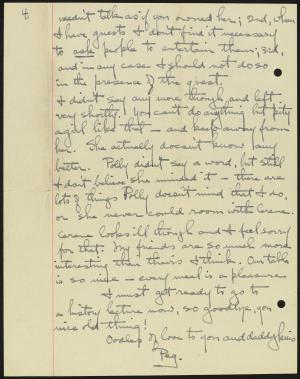 4.
needn't talk as if you owned her; 2nd, when
I have guests I don't find it necessary
to ask people to entertain them; 3rd,
and in any case I should not do so
in the presence of the guest.
I didn't say any more though, and left
very shortly. You can't do anything but pity
a girl like that – and keep away from
her. She actually doesn't know any
better. Polly didn't say a word, but still
I don't believe she minded it – there are
lots of things Polly doesn't mind that I do,
or she never could room with
looks ill though and I feel sorry
for that. My friends are so much more
interesting than theirs I think. Our talk
is so nice – every meal is a pleasure.
I must get ready to go to
a history lecture now, so goodbye, you
nice old thing!
Oodles of love to you and
Peg.